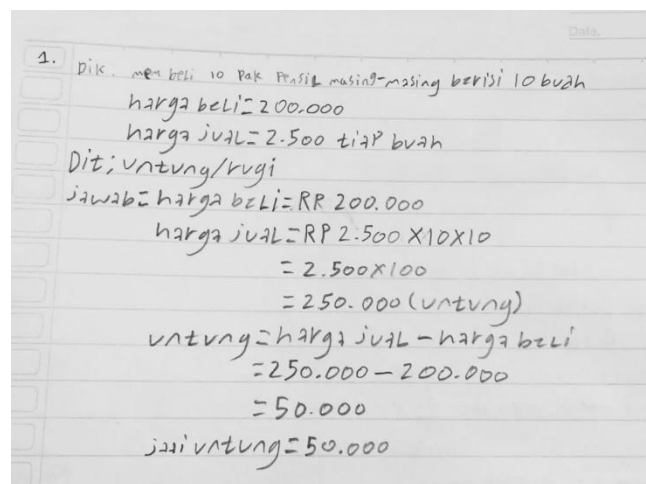 Data.
1. Dik. membeli 10 pak Pensil masing-masing berisi 10 buah
harga beli = 200.000
harga jual = 2.500 tiap buah
Dit; untung/rugi
jawab = harga beli = RP 200.000
harga jual = RP 2.500 X10X10
= 2.500X100
= 250.000 (untung)
untung = harga jual - harga beli
= 250.000 - 200.000
= 50.000
jadi untung = 50.000